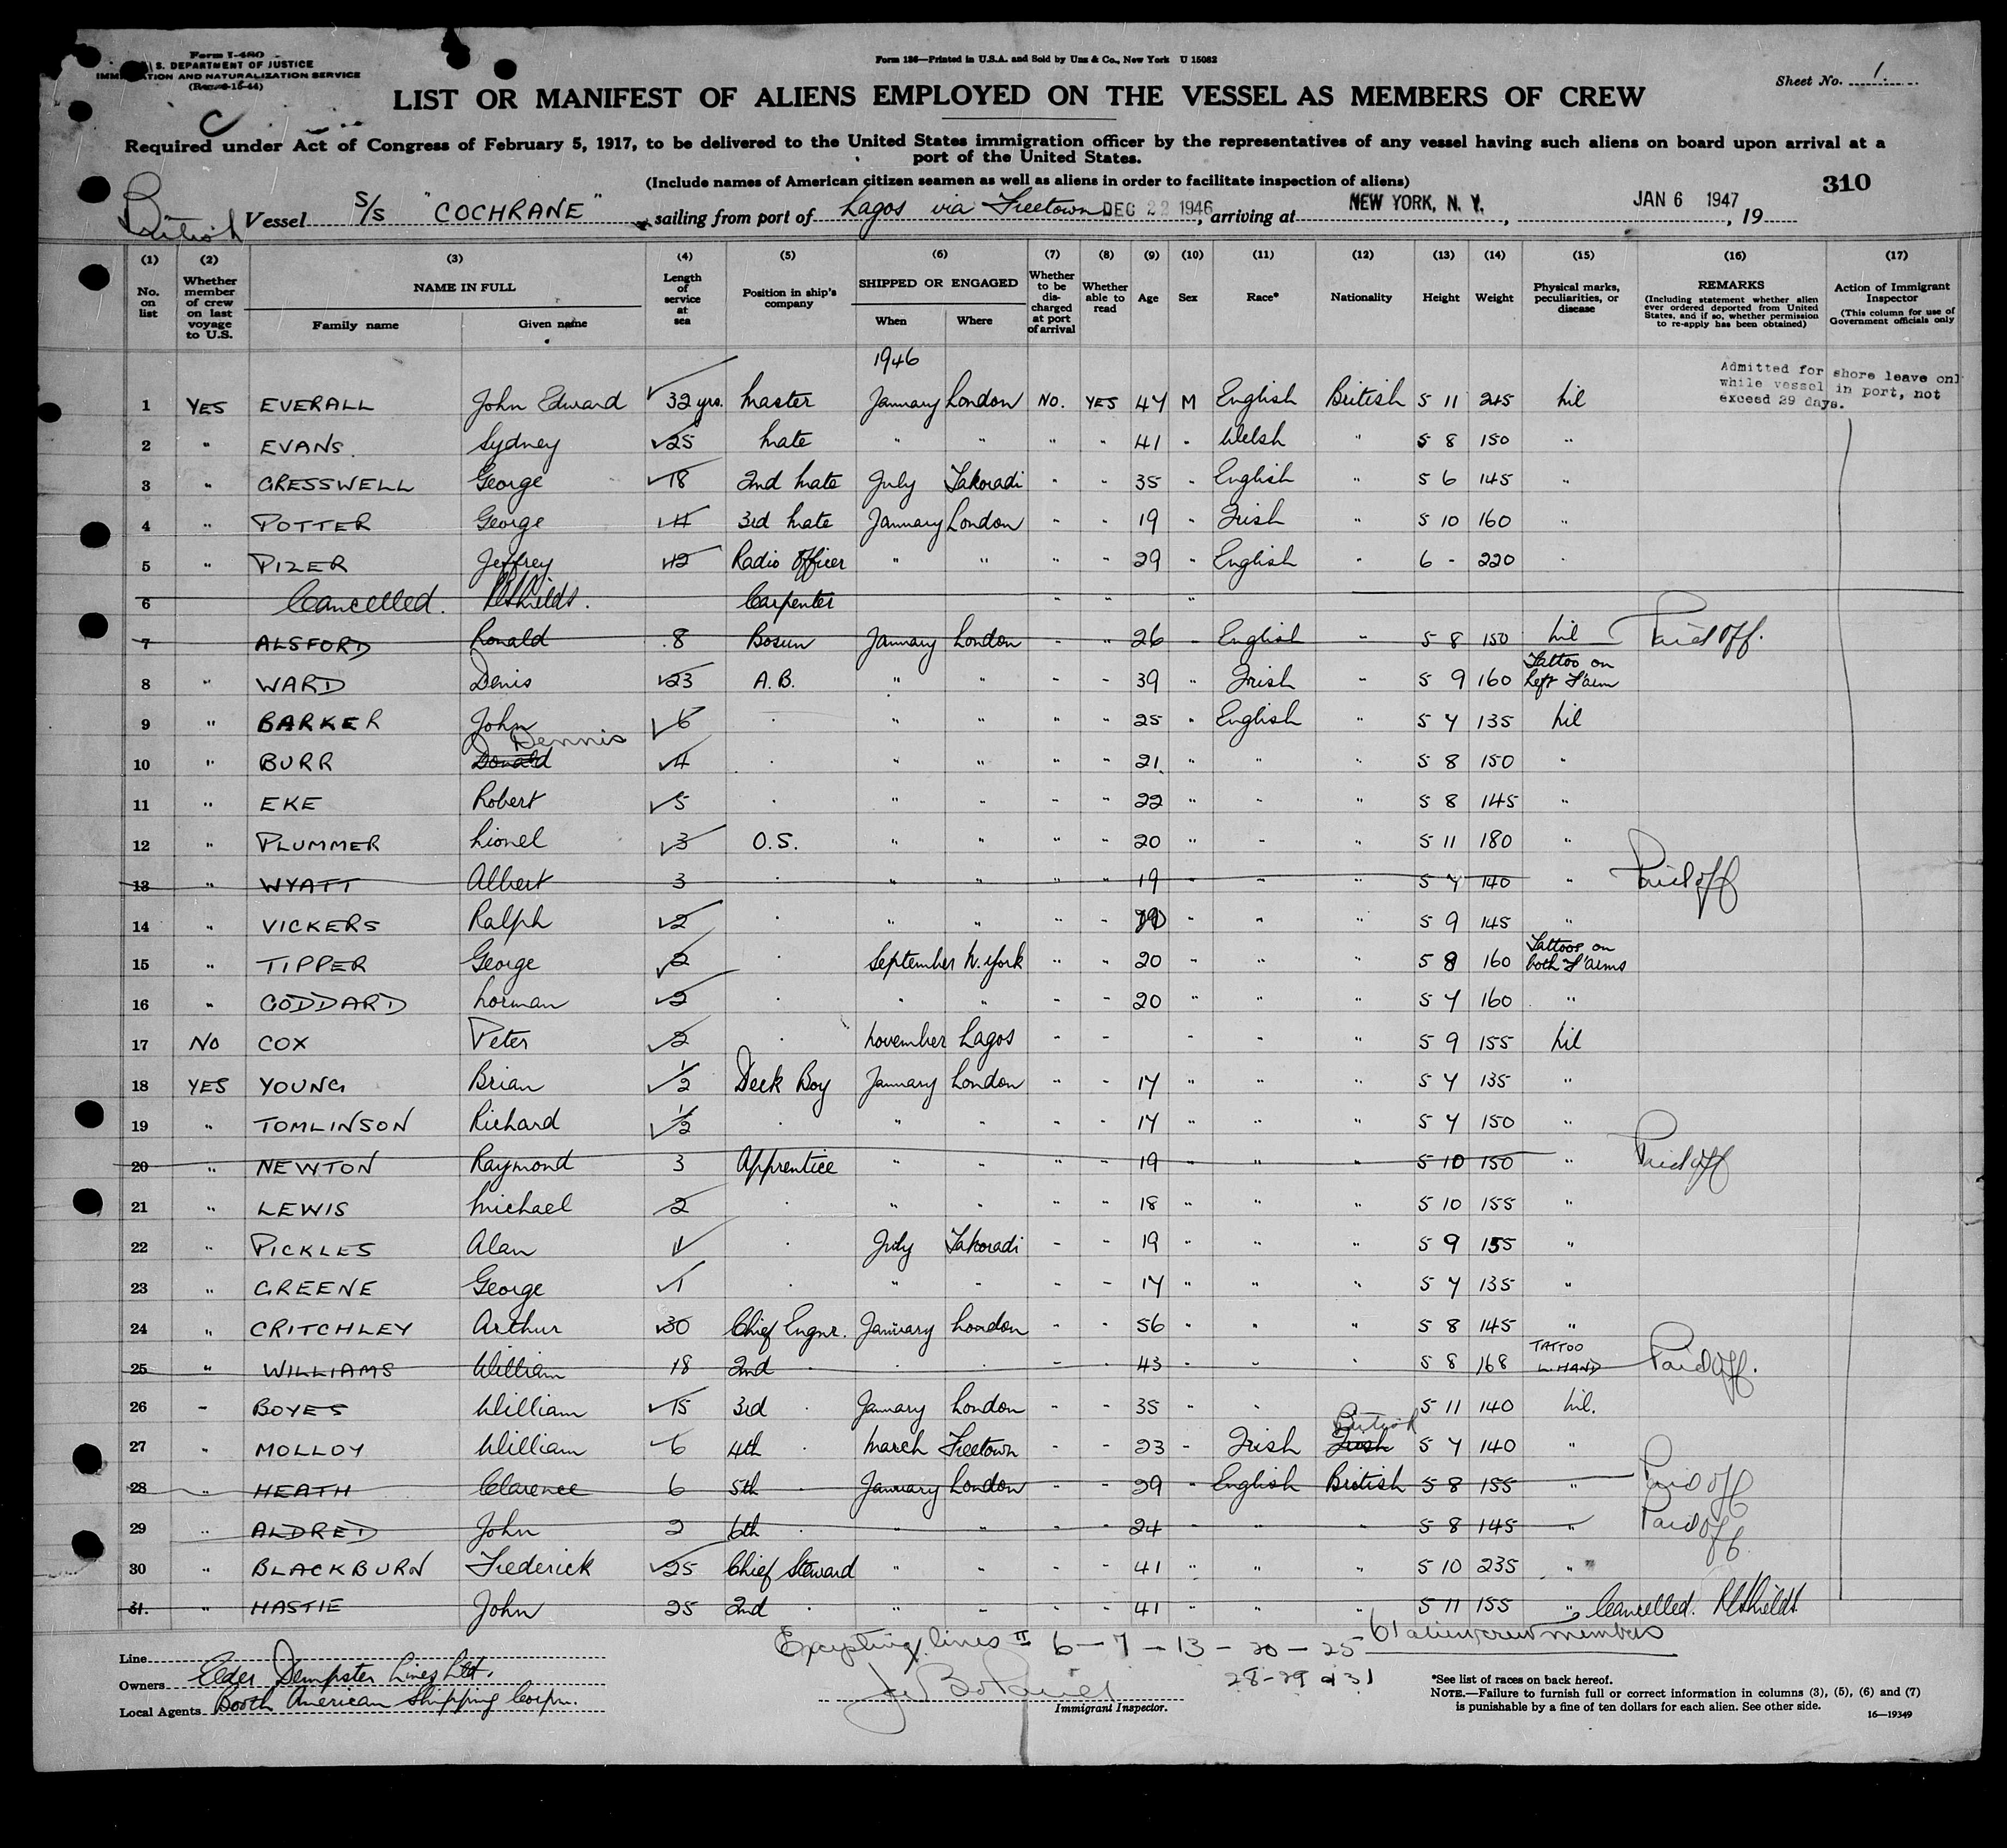 Form I-480
S. DEPARTMENT OF JUSTICE
IMMIGRATION AND NATURALIZATION SERVICE
Form 136—Printed in U.S.A. and Sold by Unz & Co., New York U 15082
Sheet No. 1.
LIST OR MANIFEST OF ALIENS EMPLOYED ON THE VESSEL AS MEMBERS OF CREW
Required under Act of Congress of February 5, 1917, to be delivered to the United States immigration officer by the representatives of any vessel having such aliens on board upon arrival at a
port of the United States.
(Include names of American citizen seamen as well as aliens in order to facilitate inspection of aliens)
310
British Vessel S/S "COCHRANE" sailing from port of Lagos via Freetown DEC 22 1946, arriving at NEW YORK, N. Y., JAN 6 1947, 19
(1) (2) (3) (4) (5) (6) (7) (8) (9) (10) (11) (12) (13) (14) (15) (16) (17)
No. on list
Whether member of crew on last voyage to U.S.
NAME IN FULL
Family name Given name
Length of service at sea
Position in ship's company
SHIPPED OR ENGAGED
When Where
Whether to be discharged at port of arrival
Whether able to read
Age
Sex
Race*
Nationality
Height
Weight
Physical marks, peculiarities, or disease
REMARKS
(Including statement whether alien ever ordered deported from United States, and if so, whether permission to re-apply has been obtained)
Action of Immigrant Inspector
(This column for use of Government officials only
1946
Admitted for shore leave onl
while vessel in port, not
exceed 29 days.
1 YES EVERALL John Edward 32 yrs. Master January London No. YES 47 M English British 5 11 245 Nil
2 " EVANS. Sydney 25 Mate " " " " 41 " Welsh " 5 8 150 "
3 " CRESSWELL George 18 2nd Mate July Takoradi " " 35 " English " 5 6 145 "
4 " POTTER George 3rd Mate January London " " 19 " Irish " 5 10 160 "
5 " PIZER Jeffrey 12 Radio Officer " " " " 29 " English " 6 - 220 "
6 Cancelled. Carpenter " " "
7 ALSFORD Ronald 8 Bosun January London " " 26 " English " 5 8 150 Nil Paid Off.
8 " WARD Denis 23 A.B. " " " " 39 " Irish " 5 9 160 Tattoo on Left F'arm
9 " BARKER John 6 " " " " " 25 " English " 5 7 135 Nil
10 " BURR Donald Dennis 4 " " " " " 21 " " " 5 8 150 "
11 " EKE Robert 5 " " " " " 22 " " " 5 8 145 "
12 " PLUMMER Lionel 3 O.S. " " " " 20 " " " 5 11 180 "
13 " WYATT Albert 3 " " " " " 19 " " " 5 7 140 " Paid off
14 " VICKERS Ralph 2 " " " " " " " " 5 9 145 "
15 " TIPPER George 2 " September N. York " " 20 " " " 5 8 160 Tattoos on both F'arms
16 " GODDARD Norman 2 " " " " " 20 " " " 5 7 160 "
17 NO COX Peter 2 " November Lagos " " " " " 5 9 155 Nil
18 YES YOUNG Brian 1/2 Deck Boy January London " " 17 " " " 5 7 135 "
19 " TOMLINSON Richard 1/2 " " " " " 17 " " " 5 7 150 "
20 " NEWTON Raymond 3 Apprentice " " " " 19 " " " 5 10 150 " Paid off
21 " LEWIS Michael 2 " " " " " 18 " " " 5 10 155 "
22 " PICKLES Alan 1 " July Takoradi " " 19 " " " 5 9 155 "
23 " GREENE George 1 " " " " " 17 " " " 5 7 135 "
24 " CRITCHLEY Arthur 30 Chief Engnr. January London " " 56 " " " 5 8 145 "
25 " WILLIAMS William 18 2nd " " " " " 43 " " " 5 8 168 TATTOO L. HAND Paid Off.
26 " BOYES William 15 3rd " January London " " 35 " " 5 11 140 Nil.
27 " MOLLOY William 6 4th " March Freetown " " 23 " Irish Irish British 5 7 140 "
28 " HEATH Clarence 6 5th " January London " " 29 " English British 5 8 155 " Paid off
29 " ALDRED John 2 6th " " " " " 24 " " " 5 8 145 " Paid off
30 " BLACKBURN Frederick 25 Chief Steward " " " " 41 " " " 5 10 235 "
31. " HASTIE John 25 2nd " " " " " 41 " " " 5 11 155 " Cancelled.
Excepting lines 6 - 7 - 13 - 20 - 25 - 61 alien crew members
28 - 29 & 31
Line
Owners Elder Dempster Lines Ltd.
Local Agents Booth American Shipping Corpn.
Immigrant Inspector.
*See list of races on back hereof.
NOTE.—Failure to furnish full or correct information in columns (3), (5), (6) and (7)
is punishable by a fine of ten dollars for each alien. See other side.
16—19349